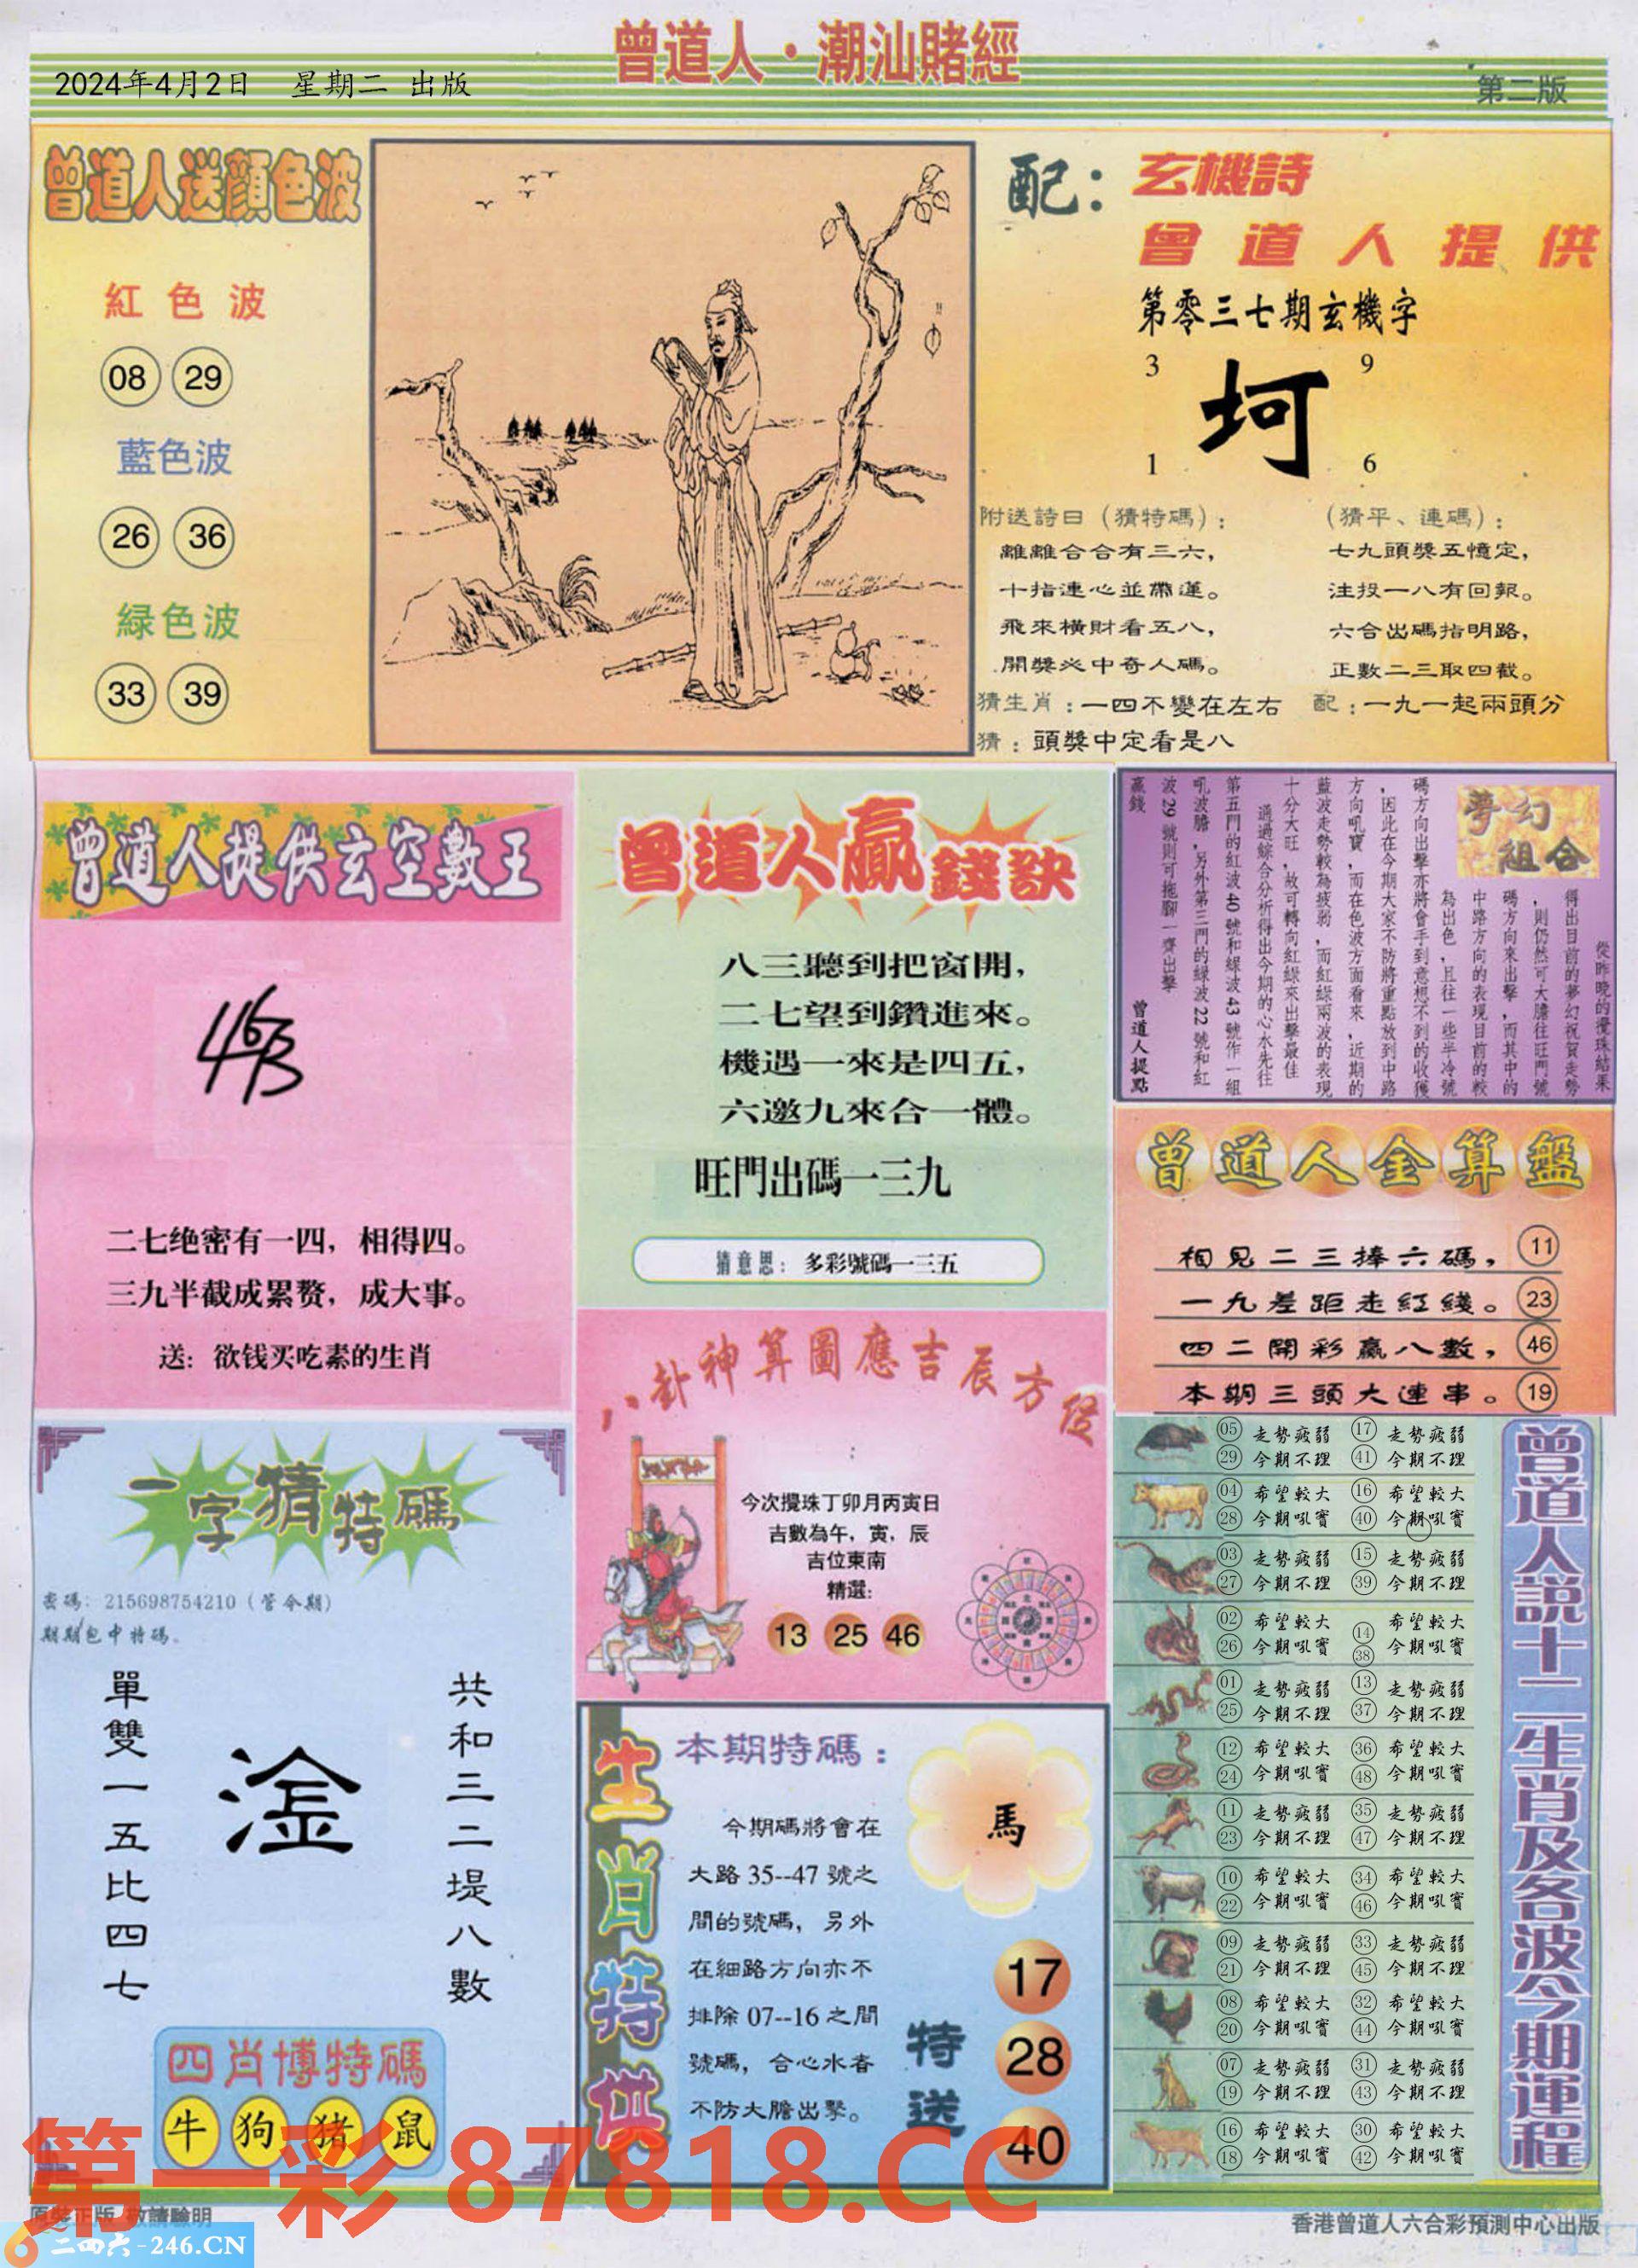 曾道人·潮汕賭經
2024年4月2日 星期二 出版
第二版
曾道人送顔色波
紅色波
08 29
藍色波
26 36
緑色波
33 39
配：玄機詩
曾道人提供
第零三七期玄機字
3 9
坷
1 6
附送詩日（猜特碼）：
離離合合有三六，
十指連心並帶蓮。
飛來橫財看五八，
開獎必中奇人碼。
（猜平、連碼）：
七九頭獎五憶定，
注投一八有回報。
六合出碼指明路，
正數二三取四截。
猜生肖：一四不變在左右
配：一九一起兩頭分
猜：頭獎中定看是八
曾道人提供玄空數王
二七绝密有一四，相得四。
三九半截成累赘，成大事。
送：欲钱买吃素的生肖
曾道人贏錢訣
八三聽到把窗開，
二七望到鑽進來。
機遇一來是四五，
六邀九來合一體。
旺門出碼一三九
猜意思：多彩號碼一三五
夢幻組合
從昨晚的攪珠結果
得出目前的夢幻祝賀走勢
，則仍然可大膽往旺門號
碼方向來出擊，而其中的
中路方向的表現目前的較
為出色，且往一些半冷號
碼方向出擊亦將會手到意想不到的收獲
，因此在今期大家不防將重點放到中路
方向吼寶，而在色波方面看來，近期的
藍波走勢較為疲弱，而紅綠兩波的表現
十分大旺，故可轉向紅綠來出擊最佳
通過綜合分析得出今期的心水先往
第五門的紅波40號和綠波43號作一組
吼波膽，另外第三門的綠波22號和紅
波29號則可拖腳一齊出擊
贏錢 曾道人提點
曾道人金算盤
相見二三捧六碼， 11
一九差距走紅綫。 23
四二開彩贏八數， 46
本期三頭大連串。 19
八卦神算圖應吉辰方位
今次攪珠丁卯月丙寅日
吉數為午，寅，辰
吉位東南
精選：
13 25 46
一字猜特碼
密碼：215698754210（管今期）
期期包中特碼。
單雙一五比四七
共和三二堤八數
四肖博特碼
牛 狗 猪 鼠
生肖特供
本期特碼：
今期碼將會在
大路35--47號之
間的號碼，另外
在細路方向亦不
排除07--16之間
號碼，合心水者
不防大膽出擊。
馬
特送
17
28
40
曾道人說十二生肖及各波今期運程
05 走勢疲弱 17 走勢疲弱
29 今期不理 41 今期不理
04 希望較大 16 希望較大
28 今期吼實 40 今期吼實
03 走勢疲弱 15 走勢疲弱
27 今期不理 39 今期不理
02 希望較大 14 希望較大
26 今期吼實 38 今期吼實
01 走勢疲弱 13 走勢疲弱
25 今期不理 37 今期不理
12 希望較大 36 希望較大
24 今期吼實 48 今期吼實
11 走勢疲弱 35 走勢疲弱
23 今期不理 47 今期不理
10 希望較大 34 希望較大
22 今期吼實 46 今期吼實
09 走勢疲弱 33 走勢疲弱
21 今期不理 45 今期不理
08 希望較大 32 希望較大
20 今期吼實 44 今期吼實
07 走勢疲弱 31 走勢疲弱
19 今期不理 43 今期不理
16 希望較大 30 希望較大
18 今期吼實 42 今期吼實
第一彩 87818.CC
原裝正版 敬請驗明
二四六-246.CN
香港曾道人六合彩預測中心出版